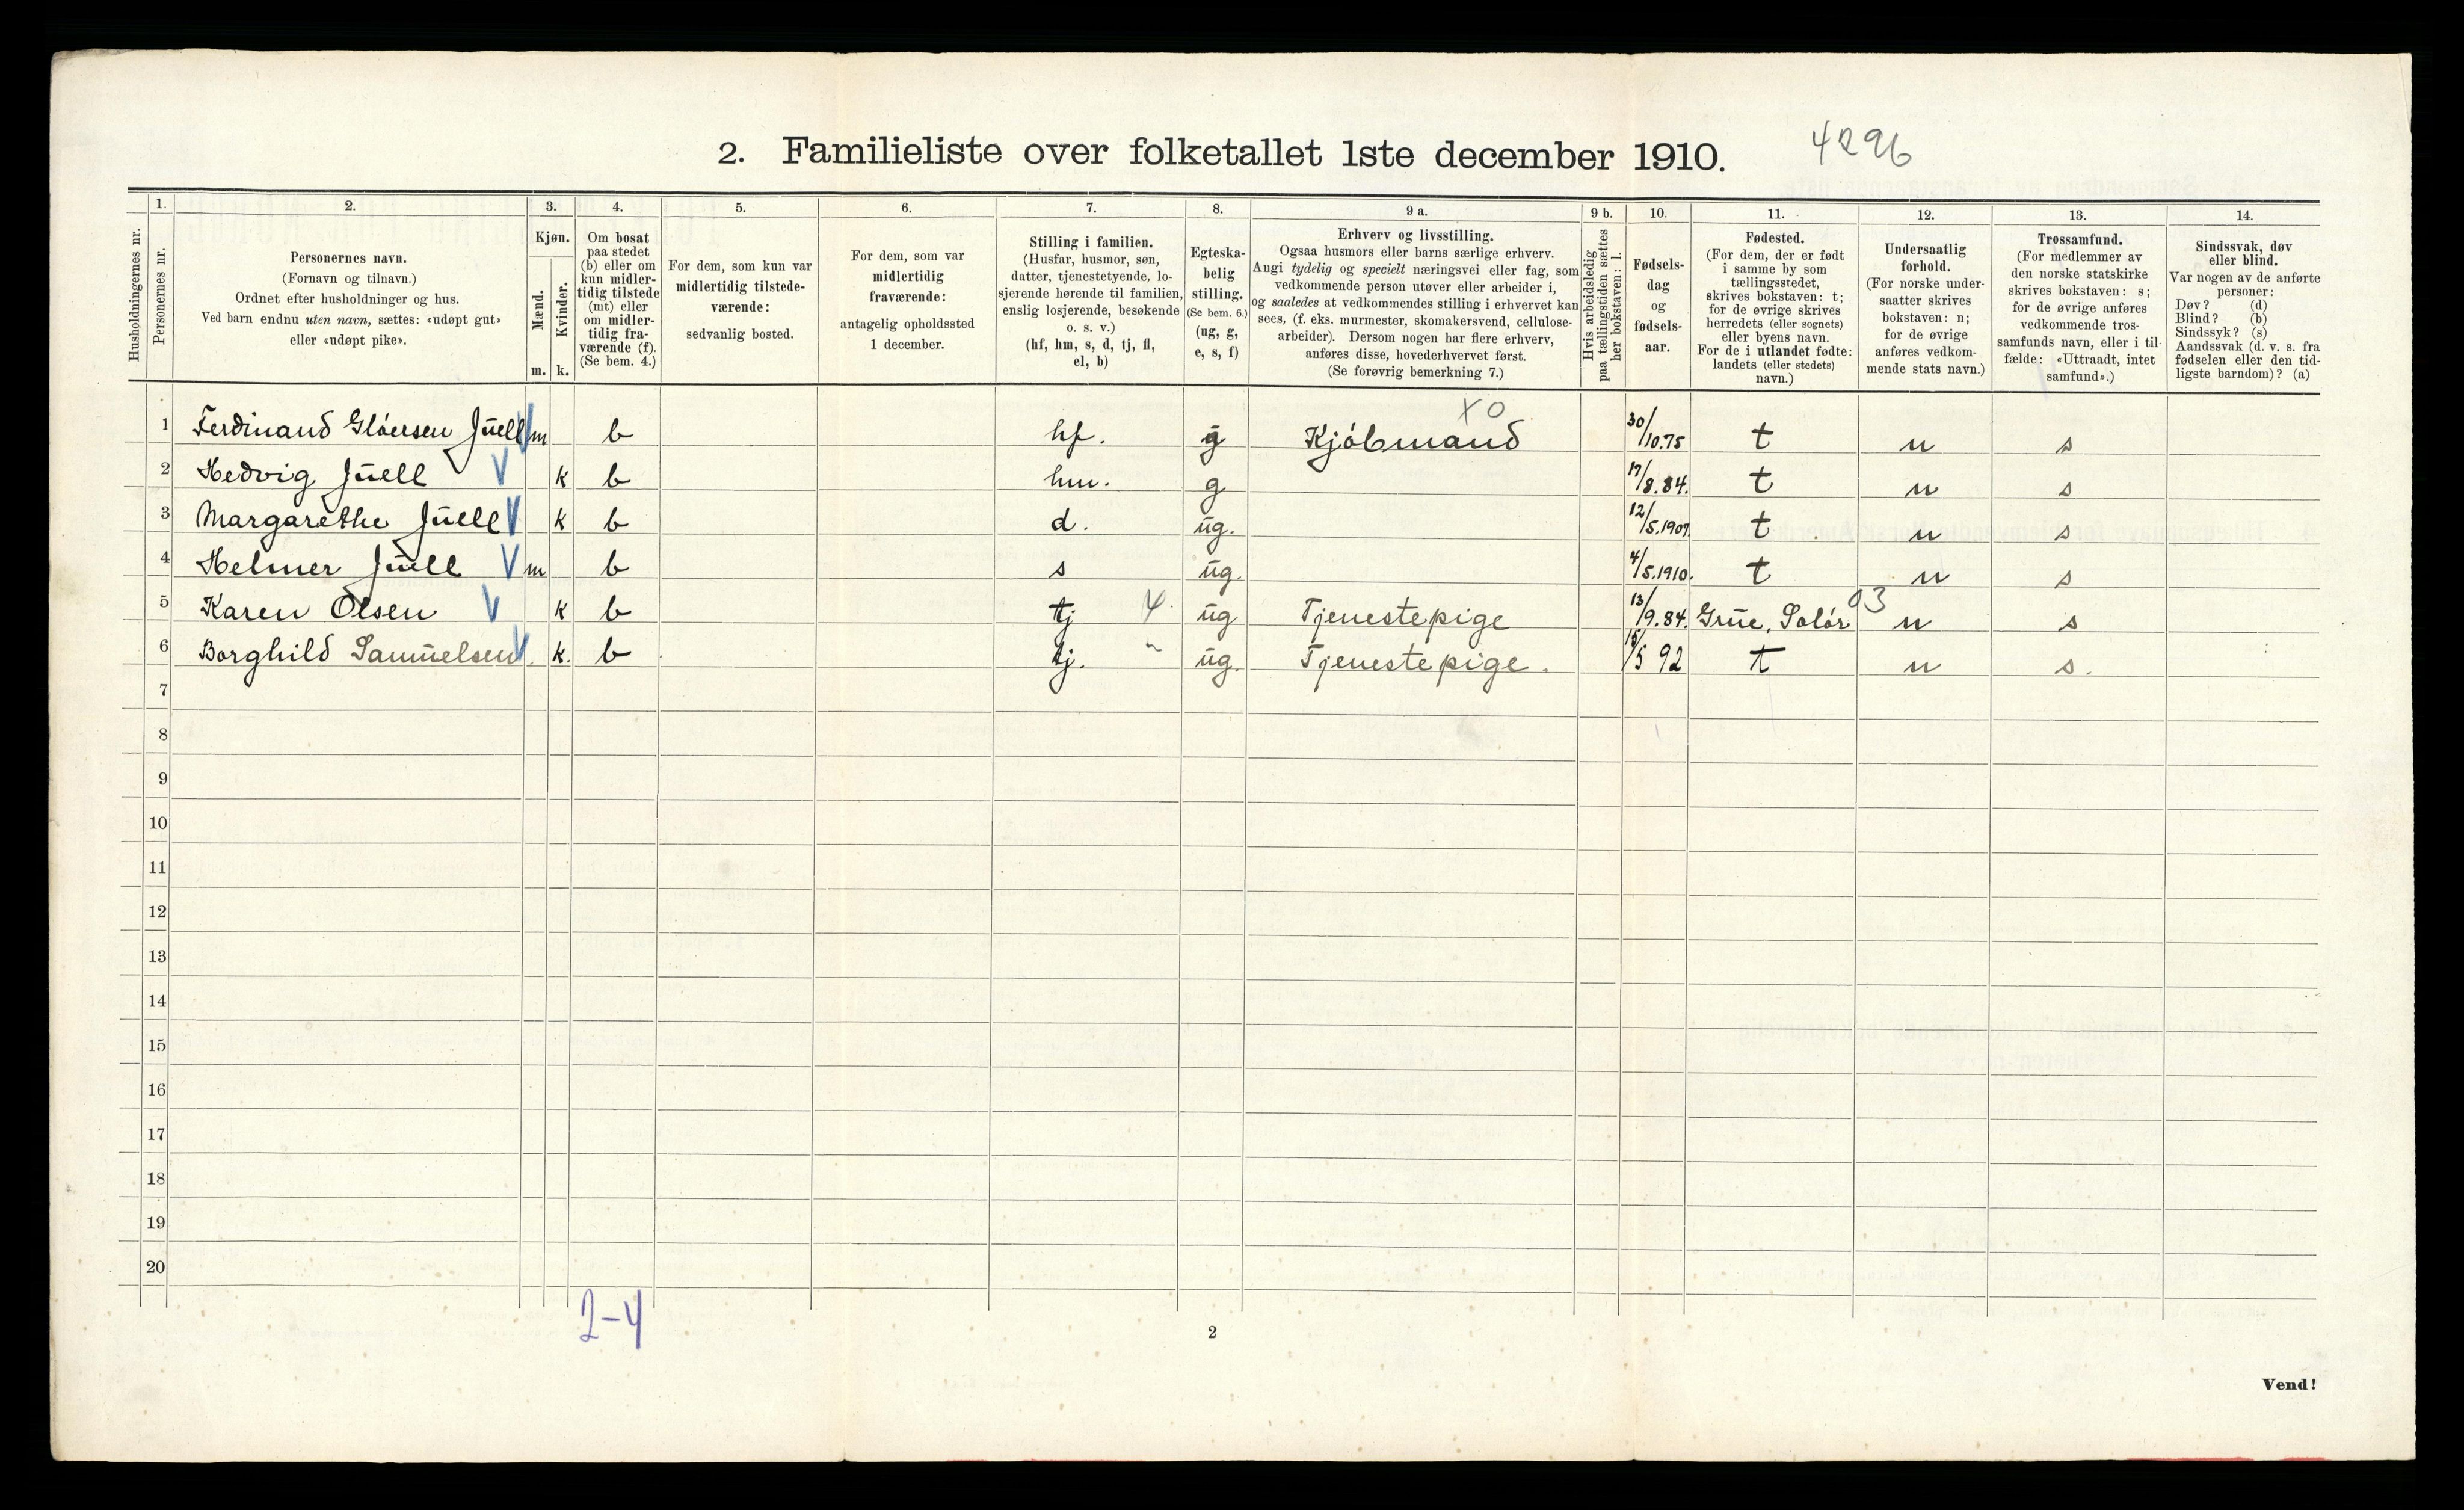 2. Familieliste over folketallet 1ste december 1910. 4296
1. 2. 3. 4. 5. 6. 7. 8. 9 a. 9 b. 10. 11. 12. 13. 14.
Husholdningernes nr.
Personernes nr.
Personernes navn.
(Fornavn og tilnavn.)
Ordnet efter husholdninger og hus.
Ved barn endnu uten navn, sættes: «udøpt gut»
eller «udøpt pike».
Kjøn.
Mænd.
Kvinder.
m. k.
Om bosat
paa stedet
(b) eller om
kun midler-
tidig tilstede
(mt) eller
om midler-
tidig fra-
værende (f).
(Se bem. 4.)
For dem, som kun var
midlertidig tilstede-
værende:
sedvanlig bosted.
For dem, som var
midlertidig
fraværende:
antagelig opholdssted
1 december.
Stilling i familien.
(Husfar, husmor, søn,
datter, tjenestetyende, lo-
sjerende hørende til familien,
enslig losjerende, besøkende
o. s. v.)
(hf, hm, s, d, tj, fl,
el, b)
Egteska-
belig
stilling.
(Se bem. 6.)
(ug, g,
e, s, f)
Erhverv og livsstilling.
Ogsaa husmors eller barns særlige erhverv.
Angi tydelig og specielt næringsvei eller fag, som
vedkommende person utøver eller arbeider i,
og saaledes at vedkommendes stilling i erhvervet kan
sees, (f. eks. murmester, skomakersvend, cellulose-
arbeider). Dersom nogen har flere erhverv,
anføres disse, hovederhvervet først.
(Se forøvrig bemerkning 7.)
Hvis arbeidsledig
paa tællingstiden sættes
her bokstaven: l.
Fødsels-
dag
og
fødsels-
aar.
Fødested.
(For dem, der er født
i samme by som
tællingsstedet,
skrives bokstaven: t;
for de øvrige skrives
herredets (eller sognets)
eller byens navn.
For de i utlandet fødte:
landets (eller stedets)
navn.)
Undersaatlig
forhold.
(For norske under-
saatter skrives
bokstaven: n;
for de øvrige
anføres vedkom-
mende stats navn.)
Trossamfund.
(For medlemmer av
den norske statskirke
skrives bokstaven: s;
for de øvrige anføres
vedkommende tros-
samfunds navn, eller i til-
fælde: «Uttraadt, intet
samfund».)
Sindssvak, døv
eller blind.
Var nogen av de anførte
personer:
Døv? (d)
Blind? (b)
Sindssyk? (s)
Aandssvak (d. v. s. fra
fødselen eller den tid-
ligste barndom)? (a)
X0
1 Ferdinand Gløersen Juell m b hf. g Kjøbmand 30/10.75 t n s
2 Hedvig Juell k b hm. g 17/8.84. t n s
3 Margarethe Juell k b d. ug. 12/5.1907. t n s
4 Helmer Juell m b s ug. 4/5.1910. t n s
5 Karen Olsen k b tj 4. ug Tjenestepige 13/9.84. Grue, Solør 03 n s
6 Borghild Samuelsen. k. b tj. " ug. Tjenestepige. 15/5 92 t n s.
7
8
9
10
11
12
13
14
15
16
17
18
19
20
2-4
2
Vend!